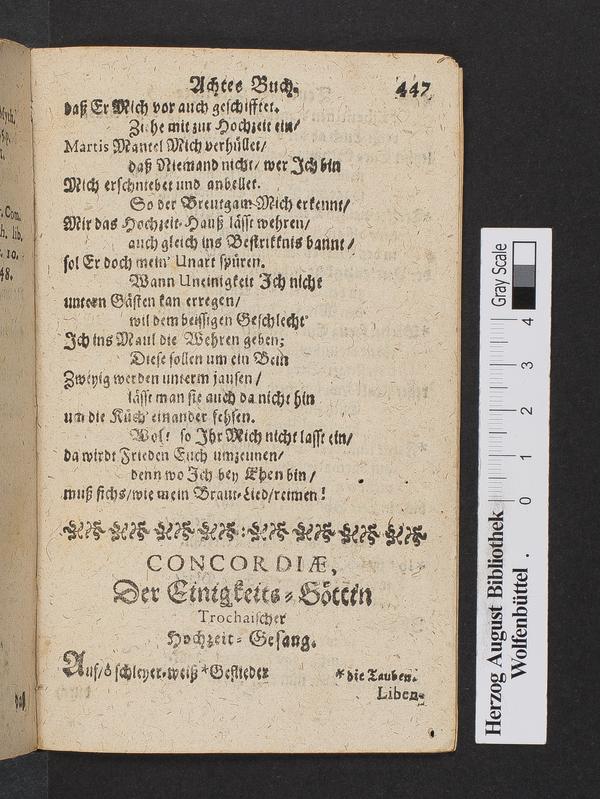 Myth.
r. Com.
h. lib.
r. 10.
48.
Achtes Buch.
447
daß Er Mich vor auch geschifftet.
Zihe mit zur Hochzeit ein/
Martis Mantel Mich verhüllet/
daß Niemand nicht/ wer Ich bin
Mich erschniebet und anbellet.
So der Breutgam Mich erkennt/
Mir das Hochzeit-Hauß lässt wehren/
auch gleich ins Bestrikknis bannt/
sol Er doch mein Unart spüren.
Wann Uneinigkeit Ich nicht
untern Gästen kan erregen/
wil dem beissigen Geschlecht
Ich ins Maul die Wehren geben;
Diese sollen um ein Bein
Zweyig werden unterm jausen/
lässt man sie auch da nicht hin
um die Küch einander sehsen.
Wolt so Ihr Mich nicht lasst ein/
da wirdt Frieden Euch umzeunen/
denn wo Ich bey Ehen bin/
muß sichs/wie mein Braut-Lied/reimen!
CONCORDIÆ,
Der Einigkeits-Göttin
Trochaischer
Hochzeit-Gesang.
Auf/ô schleyer-weiß *Geflieder
*die Tauben.
Liben-
Herzog August Bibliothek
Wolfenbüttel .
Gray Scale
0 1 2 3 4